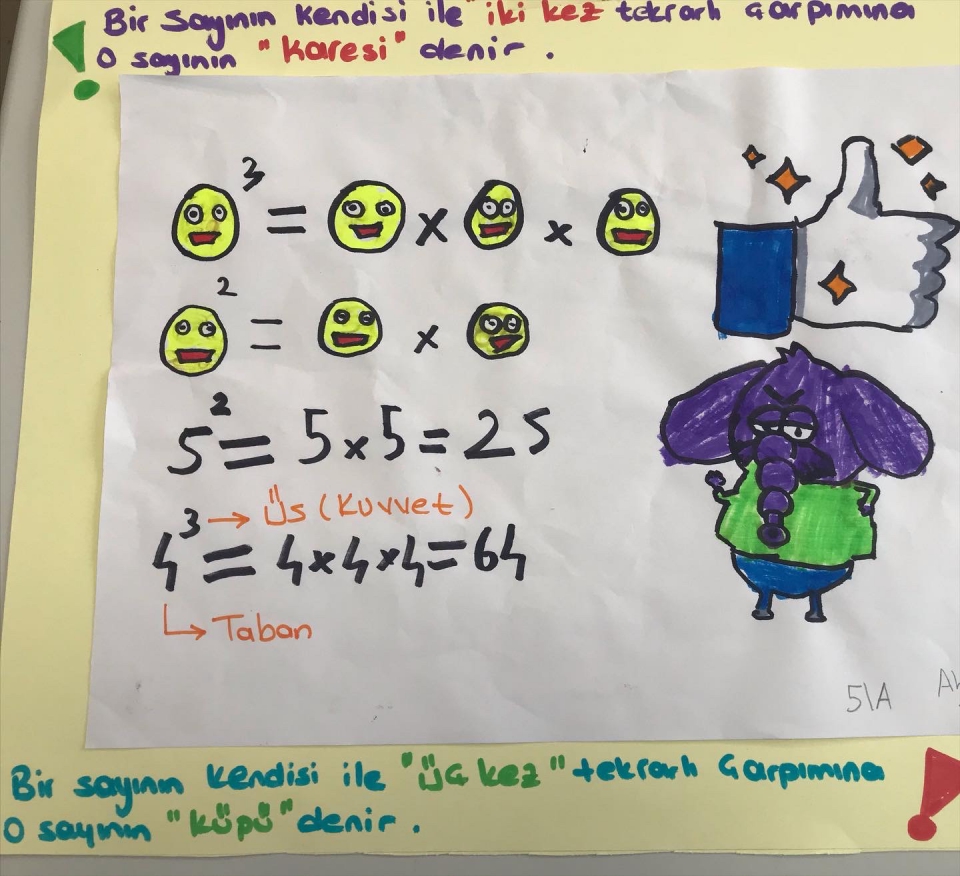 Bir sayının kendisi ile "iki kez" tekrarlı çarpımına
o sayının "karesi" denir.
3
= x x
2
= x
5² = 5x5=25
→ Üs (Kuvvet)
4³ = 4x4x4=64
↳ Taban
5\A
Bir sayının kendisi ile "üç kez" tekrarlı çarpımına
o sayının "küpü" denir.